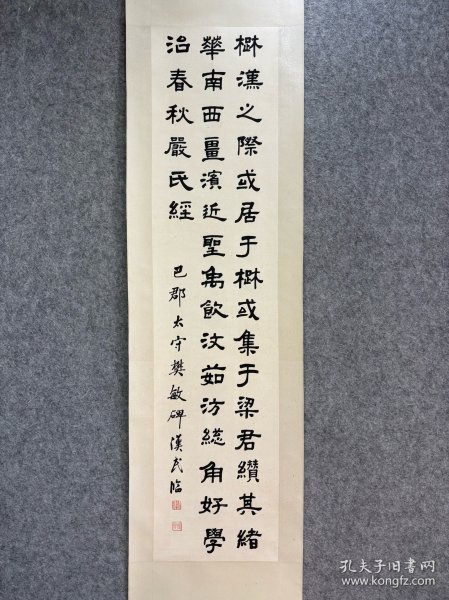 楙漢之際或居于楙或集于梁君纘其緒
華南西畺濱近聖禹飲汶茹汸緫角好學
治春秋嚴氏經
巴郡太守樊敏碑 漢民臨
孔夫子旧书网
www.kongfz.com